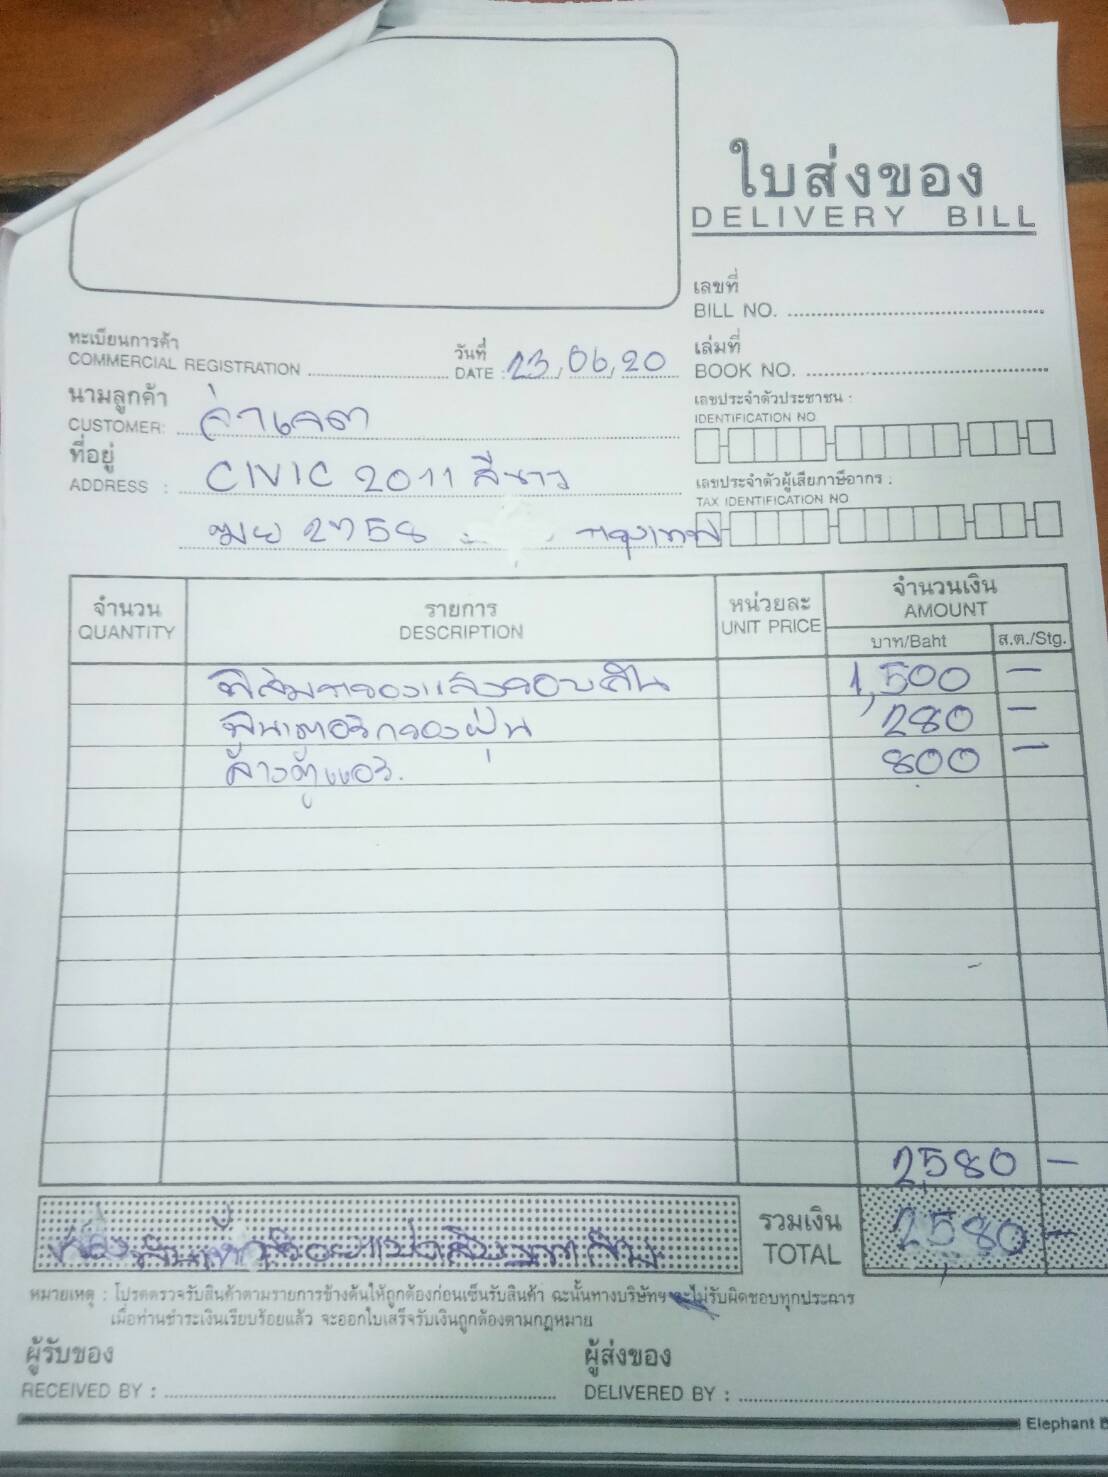 ใบส่งของ
DELIVERY BILL
เลขที่
BILL NO.
ทะเบียนการค้า
COMMERCIAL REGISTRATION
วันที่
DATE : 23,06,20
เล่มที่
BOOK NO.
นามลูกค้า
CUSTOMER:
เลขประจำตัวประชาชน :
IDENTIFICATION NO
ที่อยู่
ADDRESS : CIVIC 2011 สีขาว
เลขประจำตัวผู้เสียภาษีอากร :
TAX IDENTIFICATION NO
2758 กรุงเทพ
จำนวน
QUANTITY
รายการ
DESCRIPTION
หน่วยละ
UNIT PRICE
จำนวนเงิน
AMOUNT
บาท/Baht
ส.ต./Stg.
ฟิล์มกรองแสงรอบคัน 1,500 –
ฟิลเตอร์กรองฝุ่น 280 –
ล้างตู้แอร์. 800 –
2,580 –
สองพันห้าร้อยแปดสิบบาทถ้วน
รวมเงิน
TOTAL
2,580 –
หมายเหตุ : โปรดตรวจรับสินค้าตามรายการข้างต้นให้ถูกต้องก่อนเซ็นรับสินค้า ฉะนั้นทางบริษัทฯ จะไม่รับผิดชอบทุกประการ
เมื่อท่านชำระเงินเรียบร้อยแล้ว จะออกใบเสร็จรับเงินถูกต้องตามกฎหมาย
ผู้รับของ
RECEIVED BY :
ผู้ส่งของ
DELIVERED BY :
Elephant